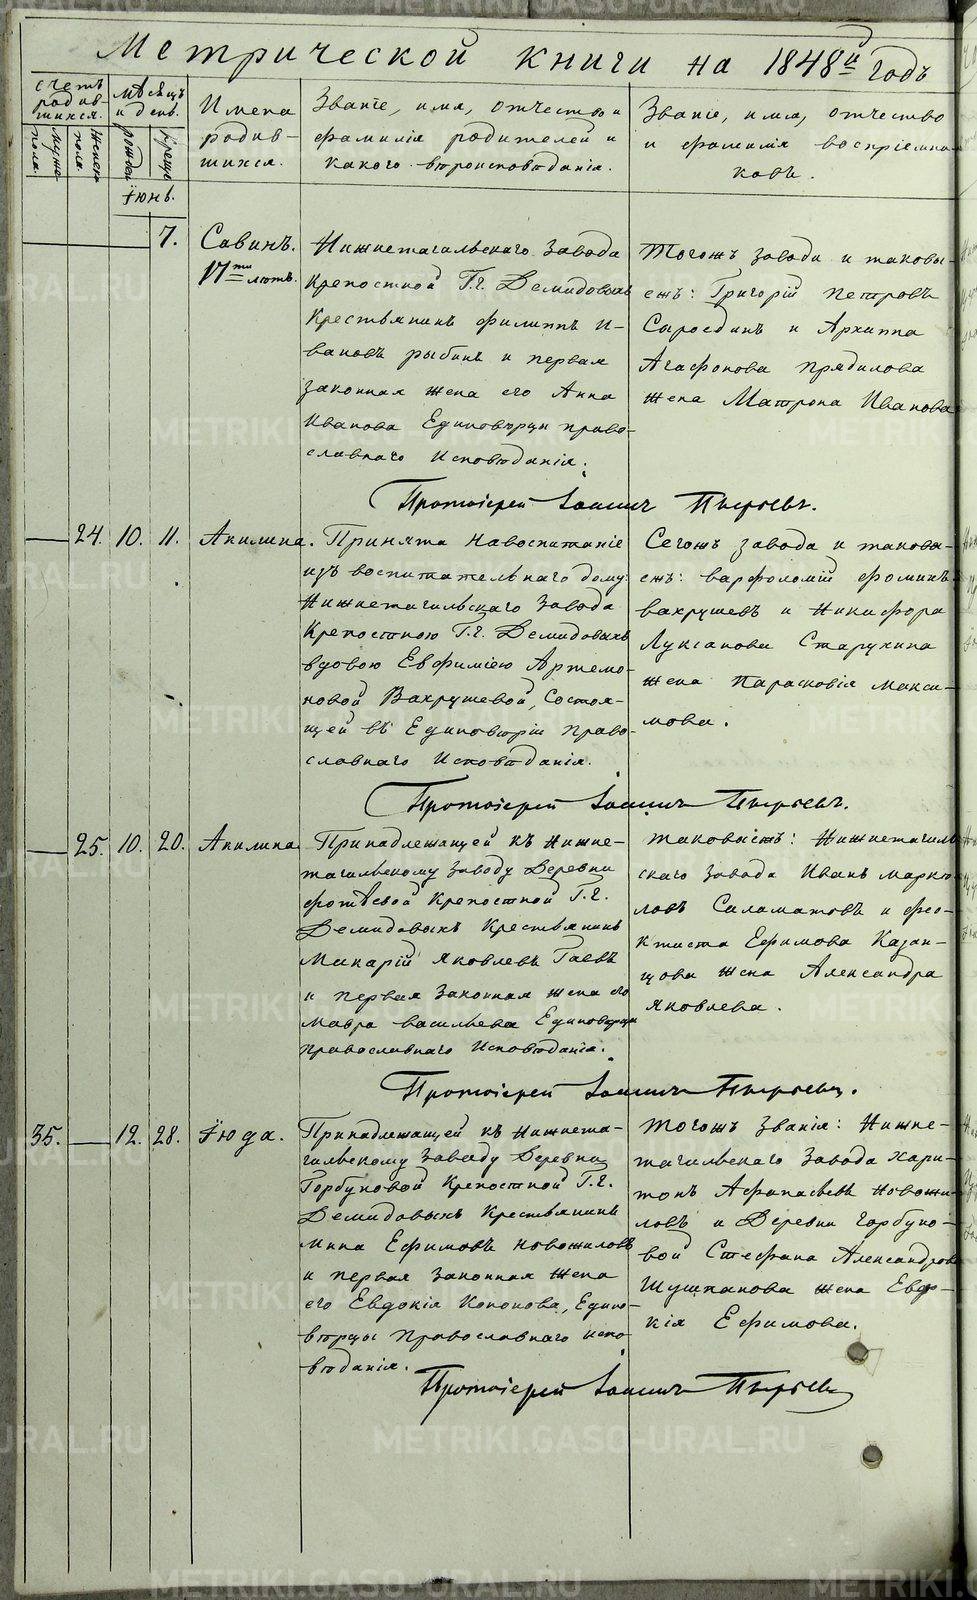 Метрической книги на 1848й годъ
счетъ родив-шихся.
мужс. пола.
женск. пола.
мѣсяцъ и день.
рожден
крещ
Имена
родив-
шихся.
Званіе, имя, отчество и
фамилія родителей и
какого вѣроисповѣданія.
Званіе, имя, отчество
и фамилія воспріемни-
ковъ.
Іюнь.
7.
Савинъ.
17ти лѣтъ.
Нижнетагильскаго завода
крепостной Г.г. Демидовыхъ
Крестьянинъ Филиппъ И-
вановъ рыбинъ и первая
законная жена его Анна
Иванова Единовѣрцы право-
славнаго Исповѣданія.
Тогожъ завода и таковы-
ежъ: Григорій Петровъ
Сыроединъ и Архиппа
Агафонова Прядилова
жена Матрона Иванова
Протоіерей Іоаннъ Пырьевъ.
24. 10. 11.
Акилина.
Принята на воспитаніе
изъ воспитательнаго дому
Нижнетагильскаго завода
Крепостною Г.г. Демидовыхъ
вдовою Евфиміею Артемо-
новой Вахрушевой, Состоя-
щей въ Единовѣріи Право-
славнаго Исповѣданія.
Сегожъ завода и таковы-
ежъ: варфоломій фоминъ
вахрушевъ и Никифора
Луксанова Старухина
жена Парасковія Макси-
мова.
Протоіерей Іоаннъ Пырьевъ.
25. 10. 20.
Акилина
Принадлежащей къ Нижне-
тагильскому заводу Деревни
фотѣевой Крепостной Г.г.
Демидовыхъ Крестьянинъ
Макарій Яковлевъ Гаевъ
и первая законная жена его
Мавра васильева Единоверцы
православнаго Исповѣданія.
таковыежъ: Нижнетагиль
скаго завода Иванъ Марке-
ловъ Саламатовъ и фео-
ктиста Ефимова Казан-
цова жена Александра
Яковлева.
Протоіерей Іоаннъ Пырьевъ.
35. 12. 28.
Іюда.
Принадлежащей къ Нижнета-
гильскому заводу Деревни
Горбуновой Крепостной Г.г.
Демидовыхъ Крестьянинъ
Мина Ефимовъ Новожиловъ
и первая законная жена
его Евдокія Кононова, Едино-
вѣрцы Православнаго испо-
вѣданія.
Тогожъ Званія: Нижне-
тагильскаго завода Хари-
тонъ Афанасьевъ Новожи-
ловъ и Деревни Горбуно-
вой Стефана Александрова
Шушпанова жена Евдо-
кія Ефимова.
Протоіерей Іоаннъ Пырьевъ
METRIKI.GASO-URAL.RU